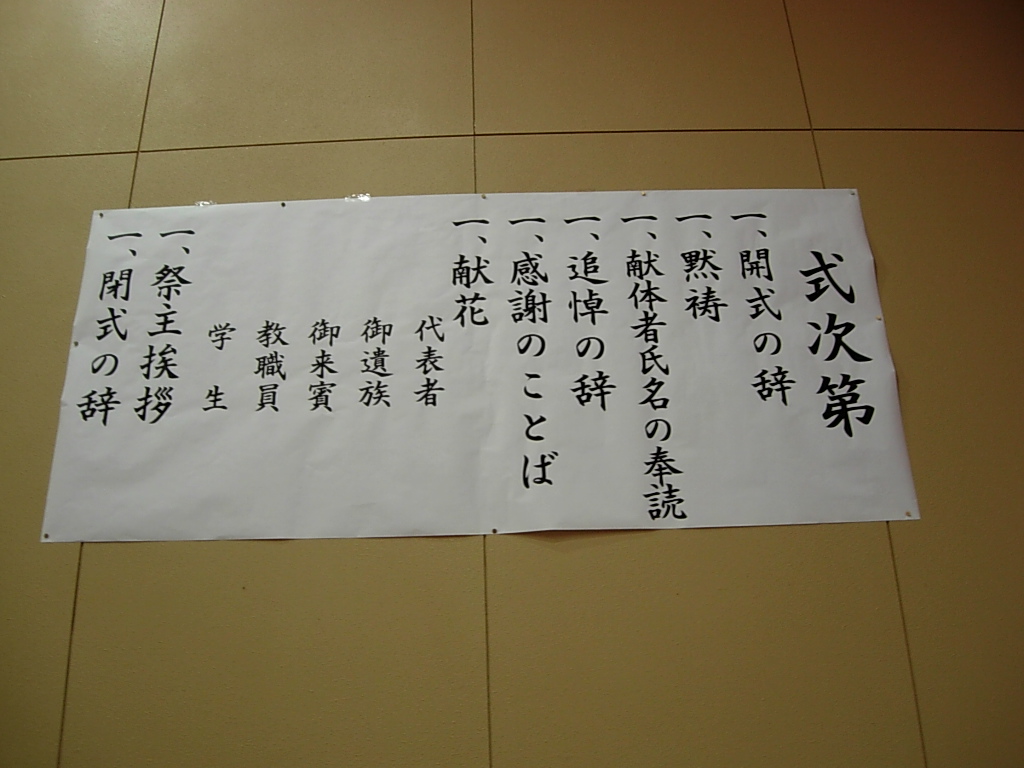 式次第
一、開式の辞
一、黙祷
一、献体者氏名の奉読
一、追悼の辞
一、感謝のことば
一、献花
代表者
御遺族
御来賓
教職員
学生
一、祭王挨拶
一、閉式の辞